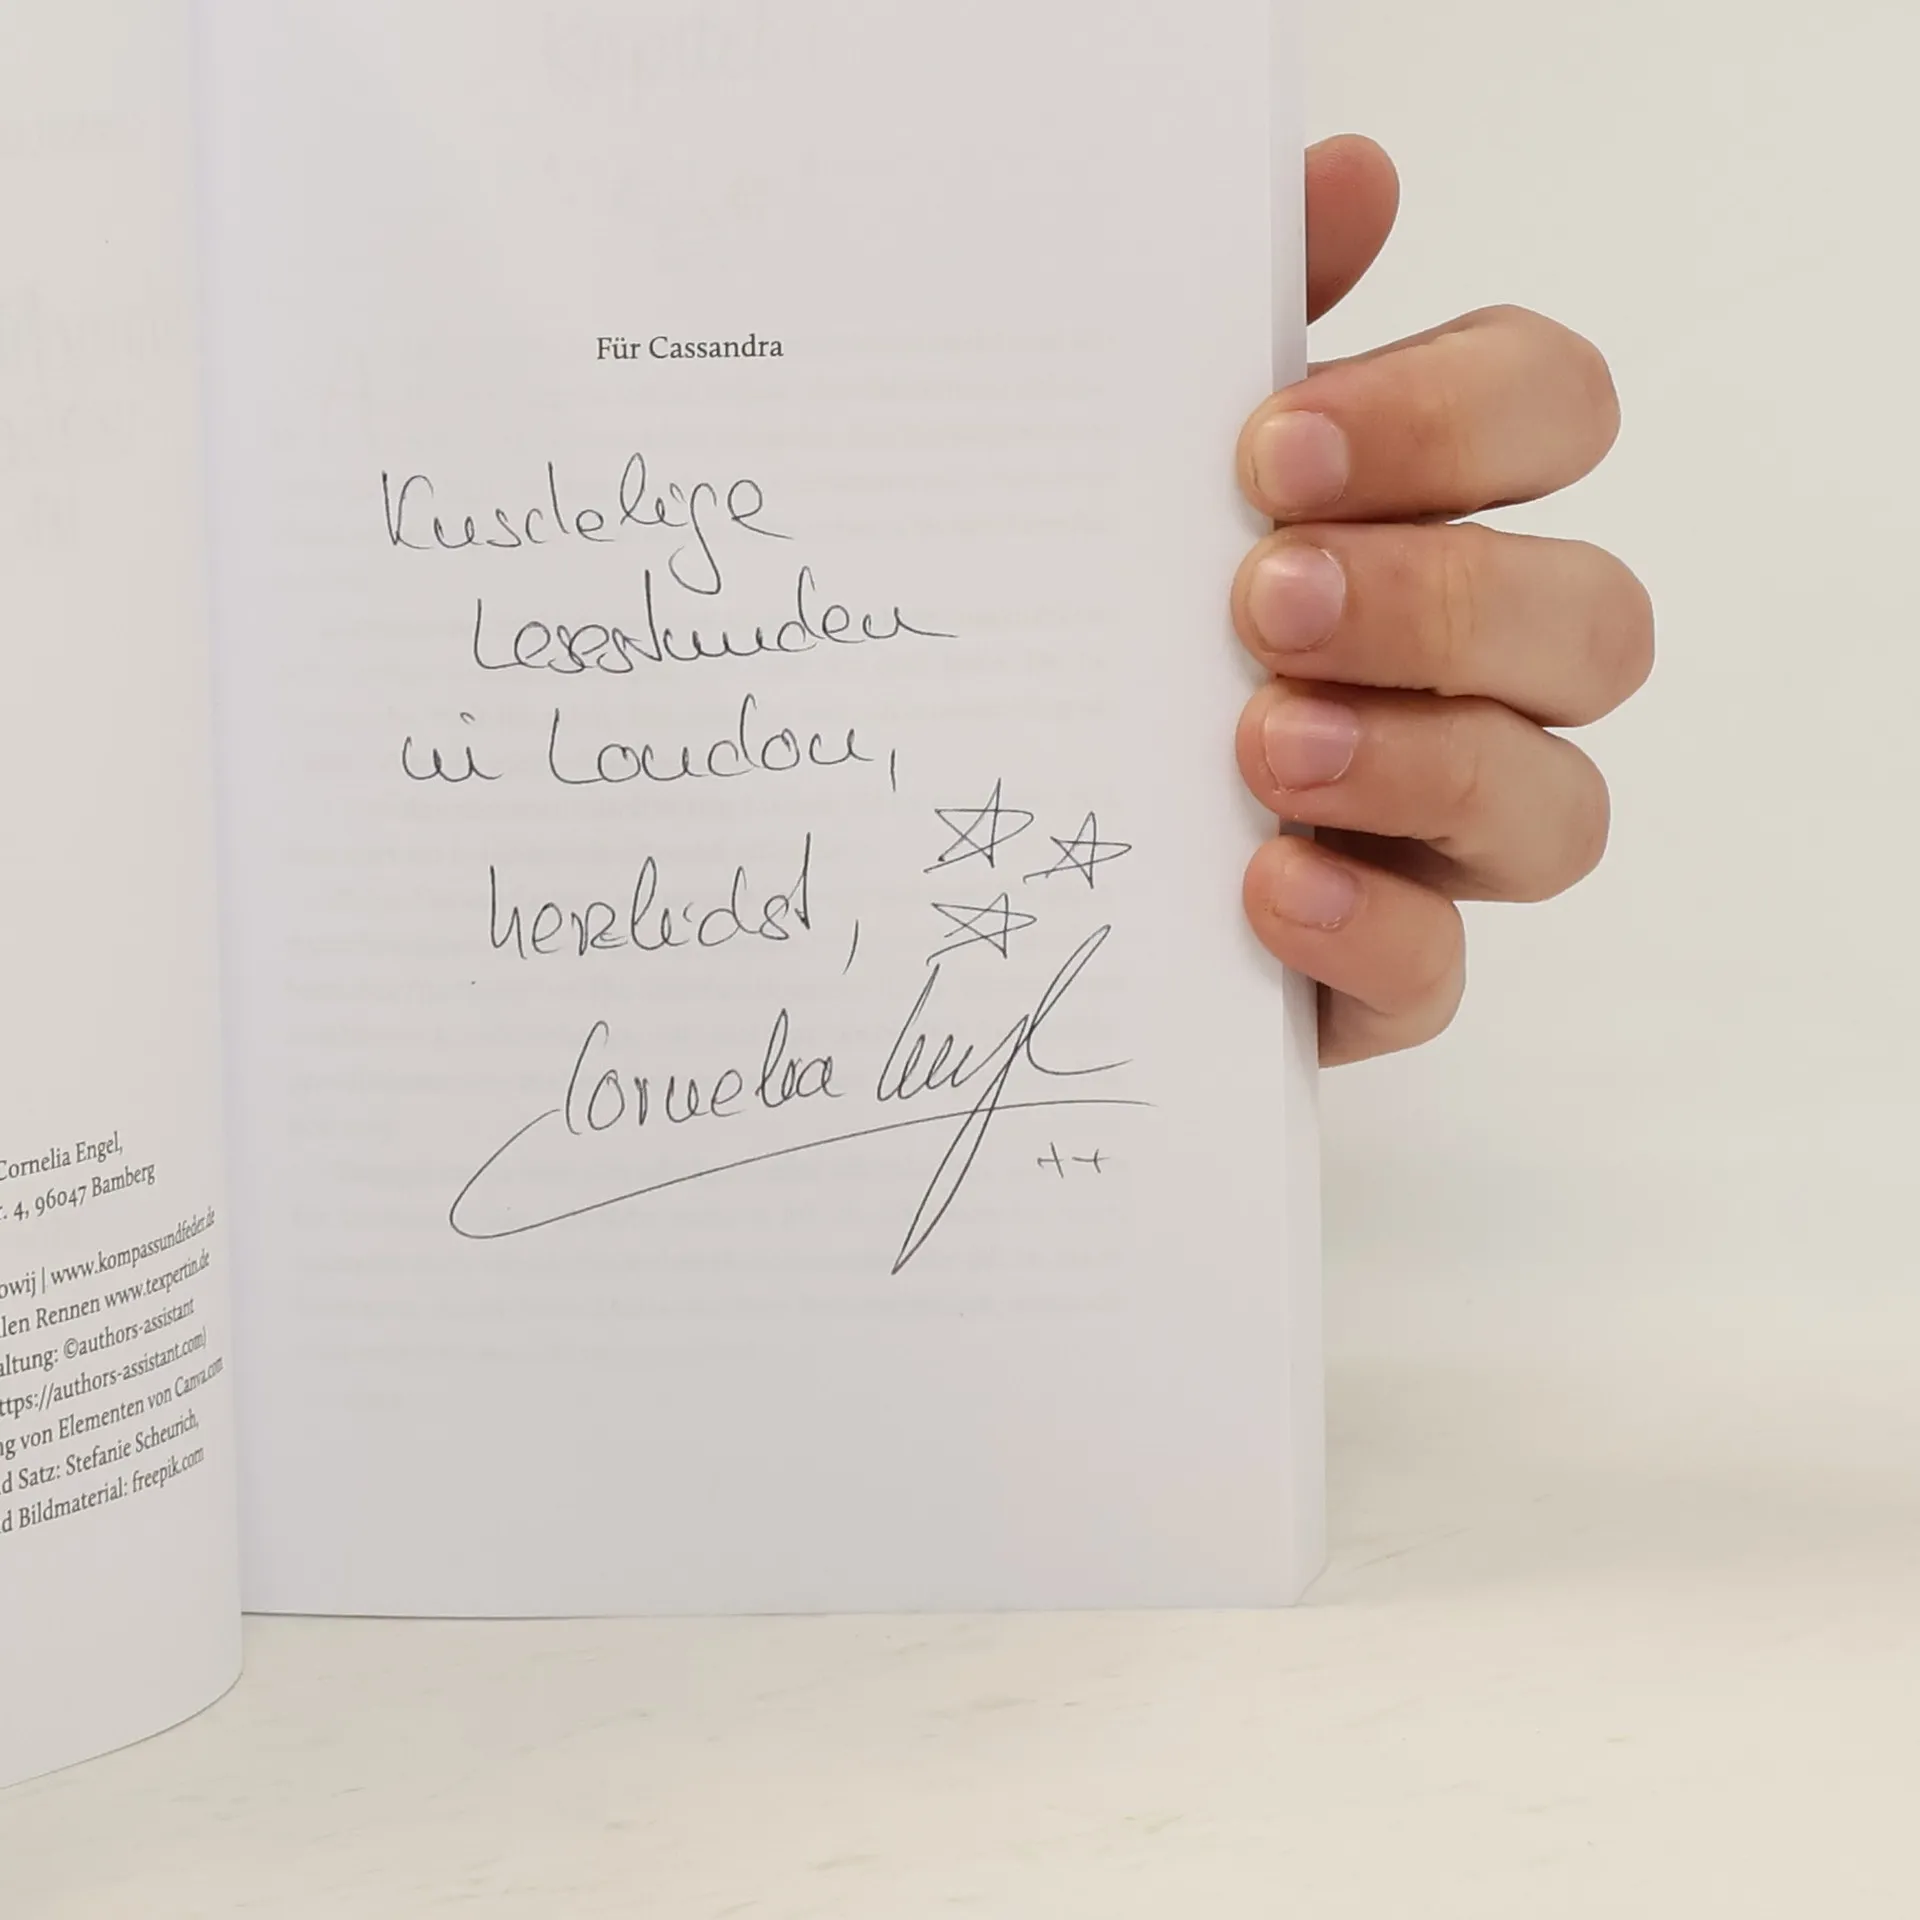 Cornelia Engel,
. 4, 96047 Bamberg
owij | www.kompassundfeder.de
len Rennen www.texpertin.de
altung: ©authors-assistant
ttps://authors-assistant.com)
ng von Elementen von Canva.com
d Satz: Stefanie Scheurich,
d Bildmaterial: freepik.com
Für Cassandra
Kuschelige
Lesestunden
in London,
herzlichst,
Cornelia Engel
++